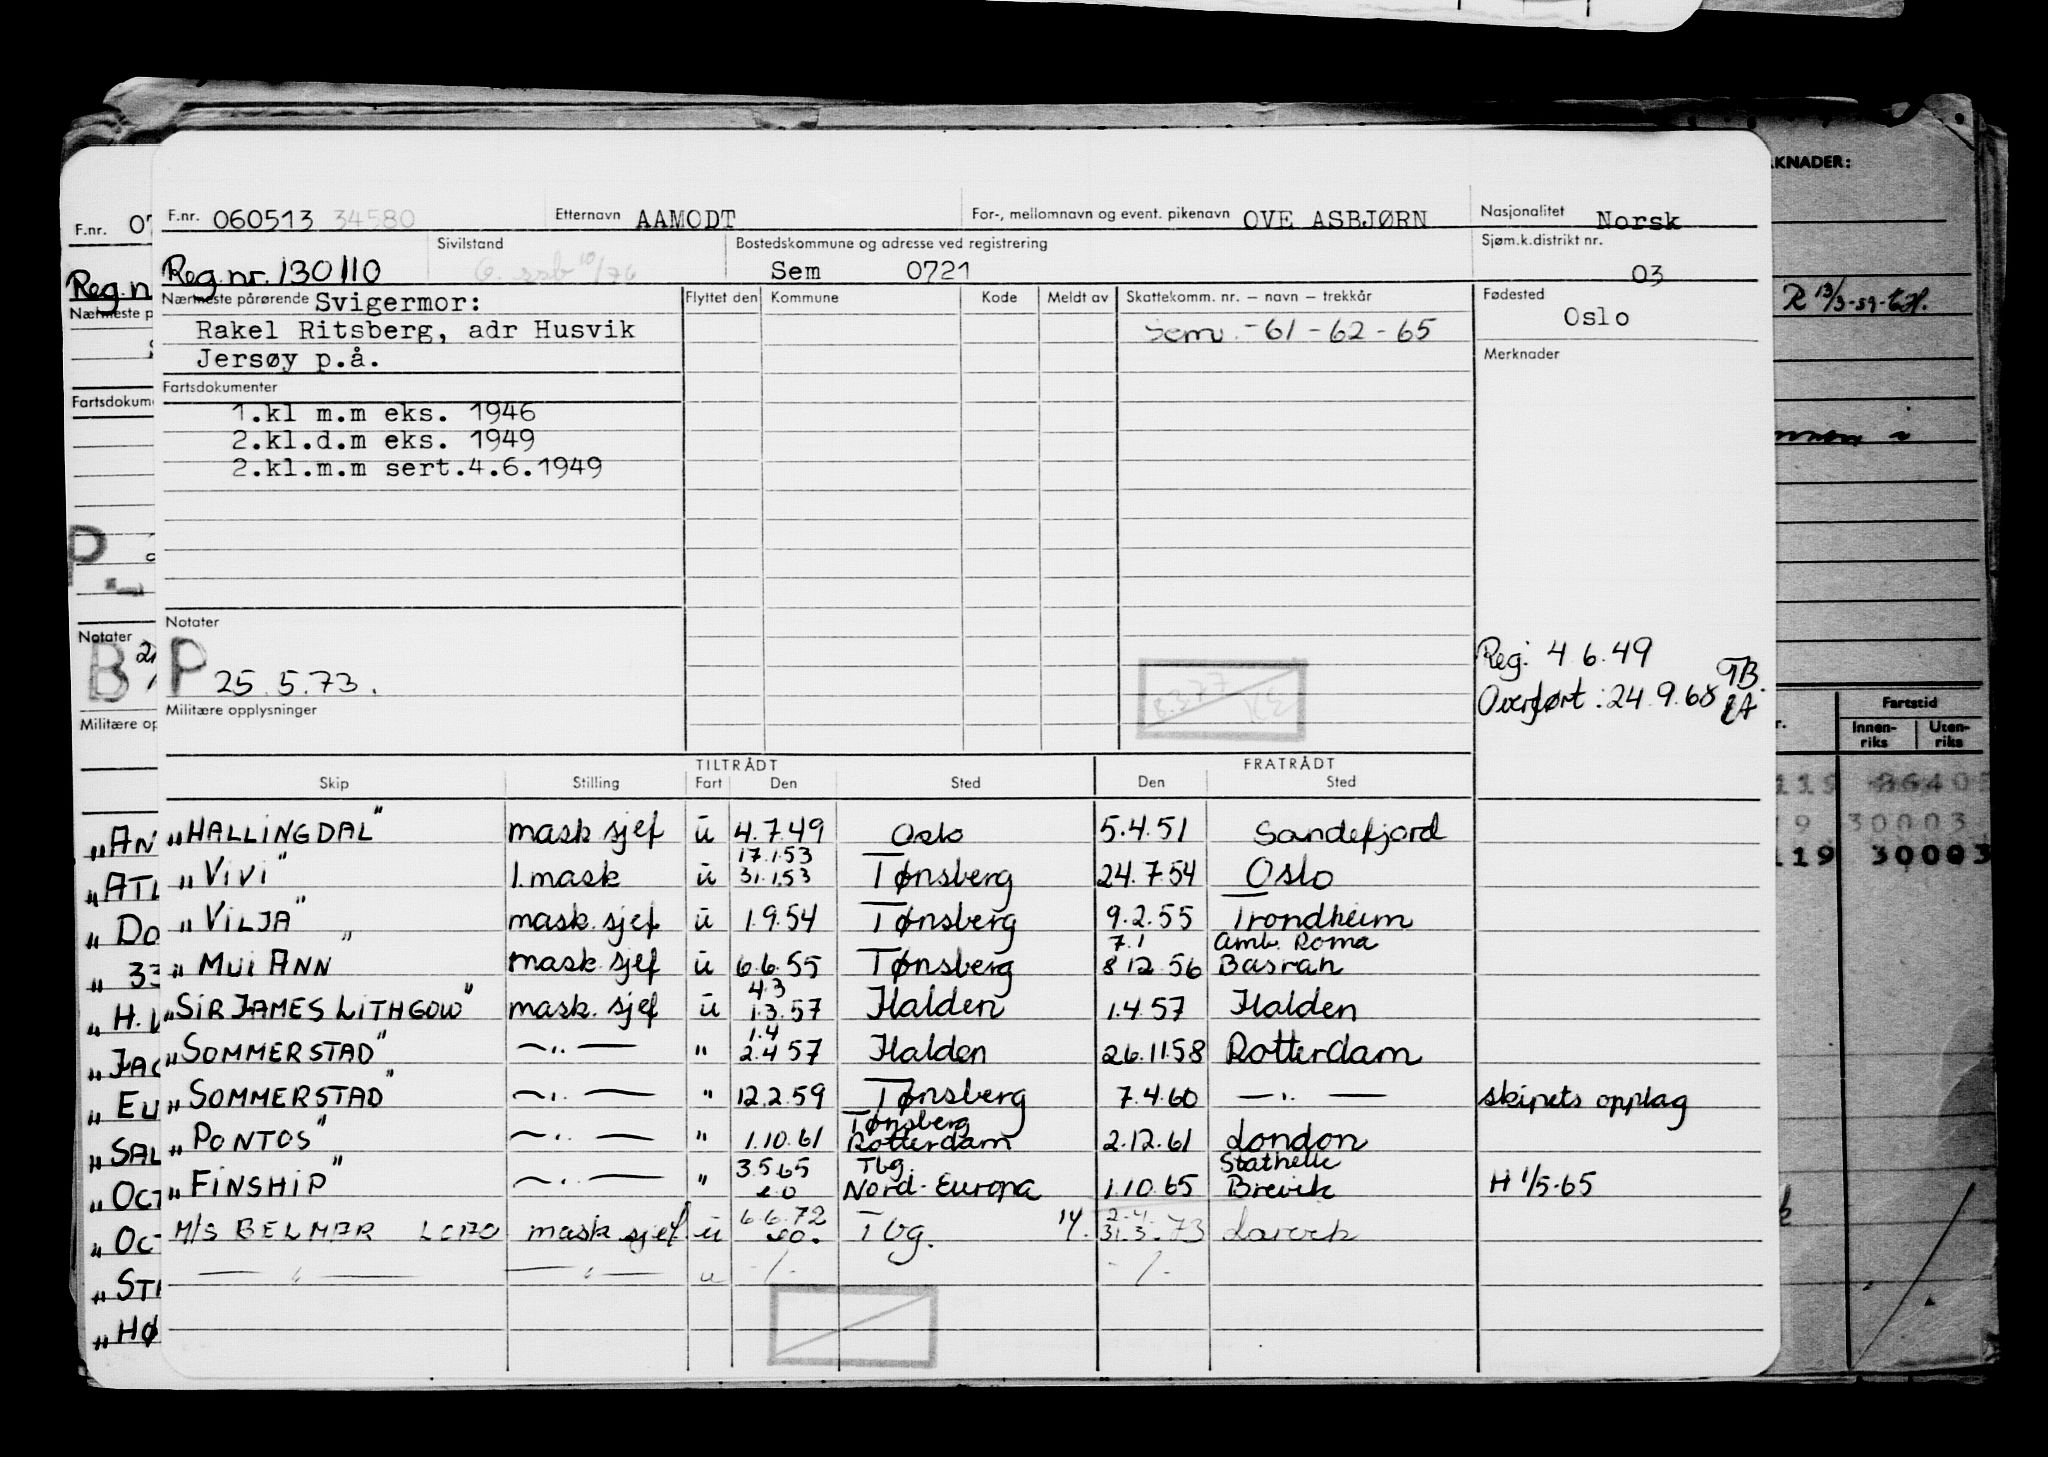 KNADER:
F.nr. 060513 34580 Etternavn AAMODT For-, mellomnavn og event. pikenavn OVE ASBJØRN Nasjonalitet Norsk
Reg.nr. 130110 Sivilstand Bostedskommune og adresse ved registrering Sem 0721 Sjøm.k.distrikt nr. 03
Nærmeste pårørende Svigermor: Flyttet den Kommune Kode Meldt av Skattekomm. nr. – navn – trekkår Fødested
Rakel Ritsberg, adr Husvik Sem. -61-62-65 Oslo
Jersøy p.å. Merknader
Fartsdokumenter
1.kl m.m eks. 1946
2.kl.d.m eks. 1949
2.kl.m.m sert.4.6.1949
Notater
P 25.5.73.
Reg. 4.6.49 TB.
Overført: 24.9.68 EA
Militære opplysninger
TILTRÅDT FRATRÅDT
Skip Stilling Fart Den Sted Den Sted
"HALLINGDAL" mask sjef u 4.7.49 Oslo 5.4.51 Sandefjord
17.1.53
"VIVI" 1.mask u 31.1.53 Tønsberg 24.7.54 Oslo
"VILJA" mask.sjef u 1.9.54 Tønsberg 9.2.55 Trondheim
7.1 Amb. Roma
"MUI ANN" mask.sjef u 6.6.55 Tønsberg 8 12.56 Basrah
4.3
"SIR JAMES LITHGOW" mask.sjef u 1.3.57 Halden 1.4.57 Halden
1.4
"SOMMERSTAD" —"— " 2.4 57 Halden 26.11.58 Rotterdam
"SOMMERSTAD" —"— " 12.2.59 Tønsberg 7.4.60 —"— skipets opplag
Tønsberg
"PONTOS" —"— " 1.10.61 Rotterdam 2.12.61 London
3.5.65 Tbg. Stathelle
"FINSHIP" —"— " eo Nord-Europa 1.10.65 Brevik H 1/5-65
6.6.72 2.4.
M/S BELMAR mask sjef. u eo. Tbg. 14. 31.3.73 Larvik
—"— —"— u -/- -/-
F.nr. 07
Reg.n
Nærmeste p
Fartsdokum
P
Notater
B
Militære op
"AN
"ATL
"DO
"33
"H.
"JAC
"EU
"SAL
"OCT
"OCT
"ST
"HØ
R 13/3-59
Fartstid
Innen-riks Uten-riks
119 86405
9 30003
119 30003